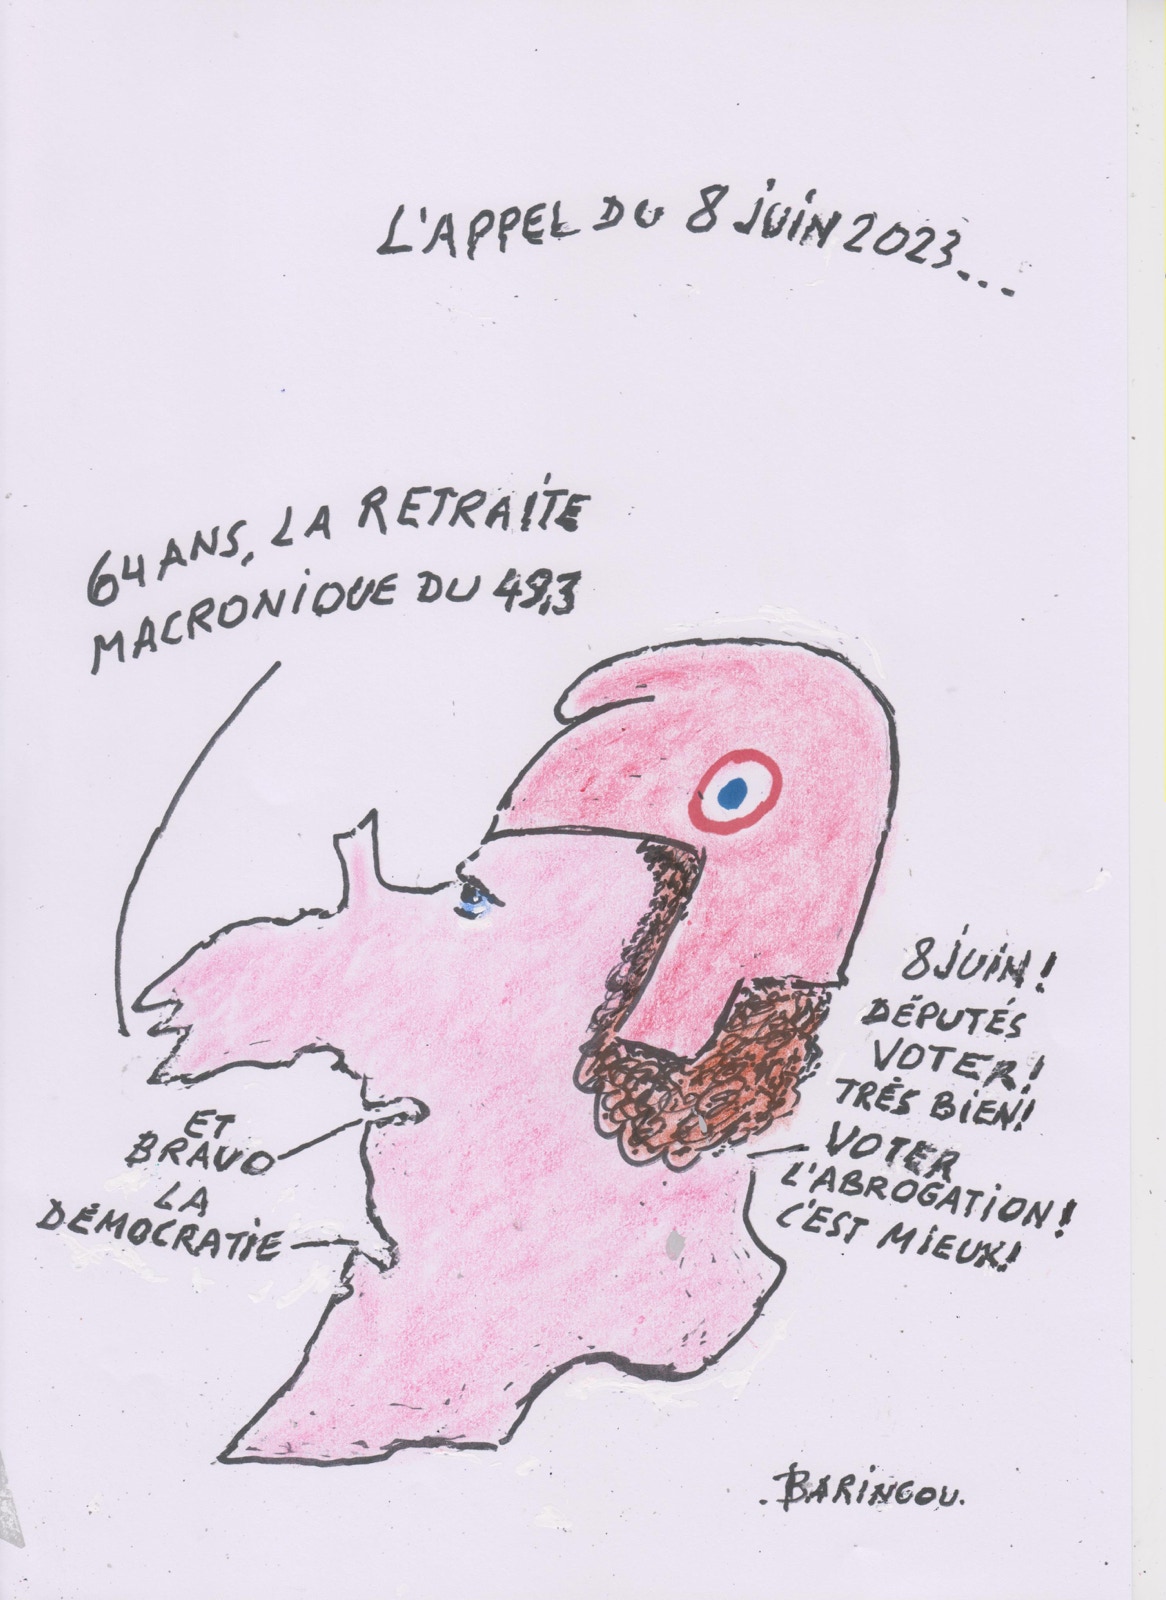 L'APPEL DU 8 JUIN 2023...
64 ANS, LA RETRAITE
MACRONIQUE DU 49,3
ET
BRAVO
LA
DÉMOCRATIE
8 JUIN !
DÉPUTÉS
VOTER !
TRÉS BIEN !
VOTER
L'ABROGATION !
C'EST MIEUX !
.BARINGOU.